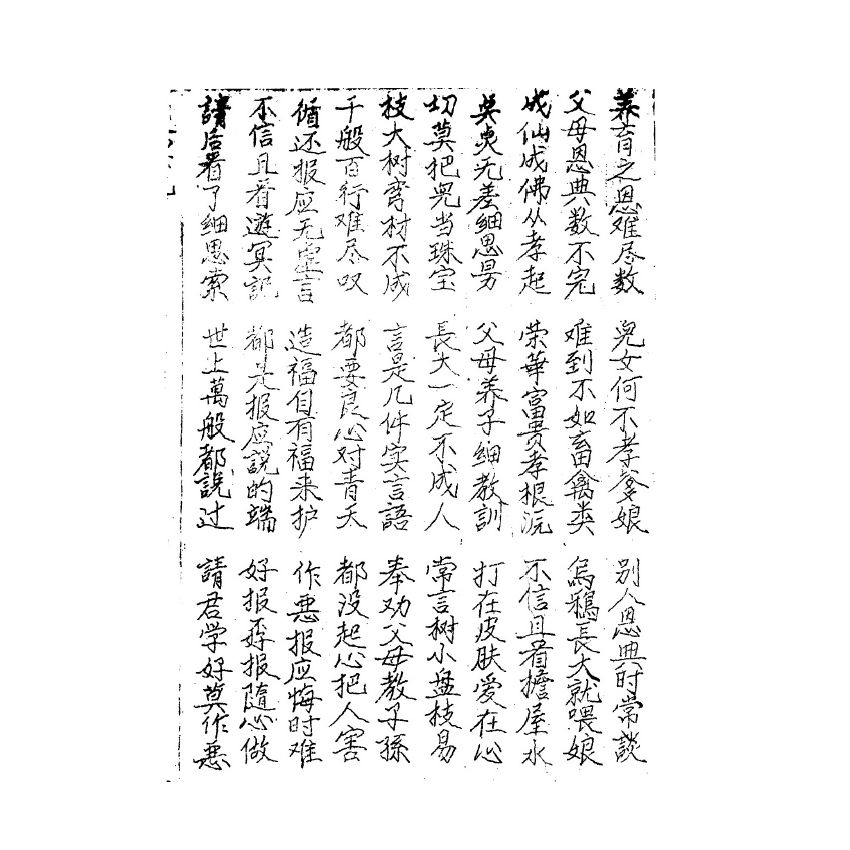 养育之恩难尽数 兒女何不孝爹娘 别人恩典时常談
父母恩典数不完 难到不如畜禽类 烏鴉長大就喂娘
成仙成佛从孝起 荣華富贵孝根沅 不信且看擔屋水
英灵无差细思男 父母养子细教訓 打在皮肤爱在心
切莫把兒当珠宝 長大一定不成人 常言树小盘枝易
枝大树弯材不成 言是几件实言語 奉劝父母教子孫
千般百行难尽叹 都要良心对青天 都没起心把人害
循还报应无虚言 造福自有福来护 作惡报应悔时难
不信且看遊冥記 都是报应説的端 好报孬报隨心做
請君看了细思索 世上萬般都説过 請君学好莫作恶